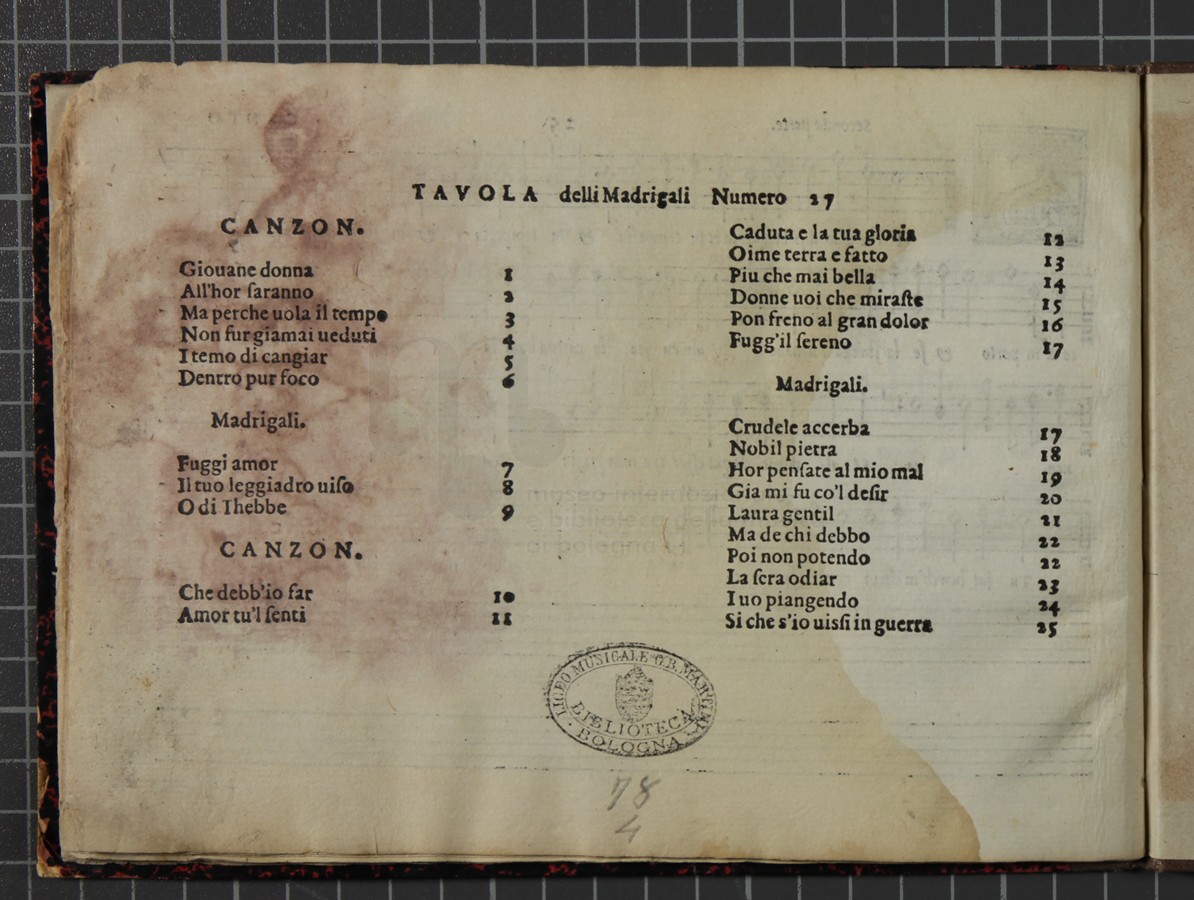 TAVOLA delli Madrigali Numero 27
CANZON.
Giouane donna 1
All'hor ſaranno 2
Ma perche uola il tempo 3
Non fur giamai ueduti 4
I temo di cangiar 5
Dentro pur foco 6
Madrigali.
Fuggi amor 7
Il tuo leggiadro uiſo 8
O di Ihebbe 9
CANZON.
Che debb'io far 10
Amor tu'l ſenti 11
Caduta e la tua gloria 12
Oime terra e fatto 13
Piu che mai bella 14
Donne uoi che miraſte 15
Pon freno al gran dolor 16
Fugg'il ſereno 17
Madrigali.
Crudele accerba 17
Nobil pietra 18
Hor penſate al mio mal 19
Gia mi fu co'l deſir 20
Laura gentil 21
Ma de chi debbo 22
Poi non potendo 22
La ſera odiar 23
I uo piangendo 24
Si che s'io uisſi in guerra 25
LICEO MUSICALE G.B. MARTINI
BIBLIOTECA
BOLOGNA
78
4